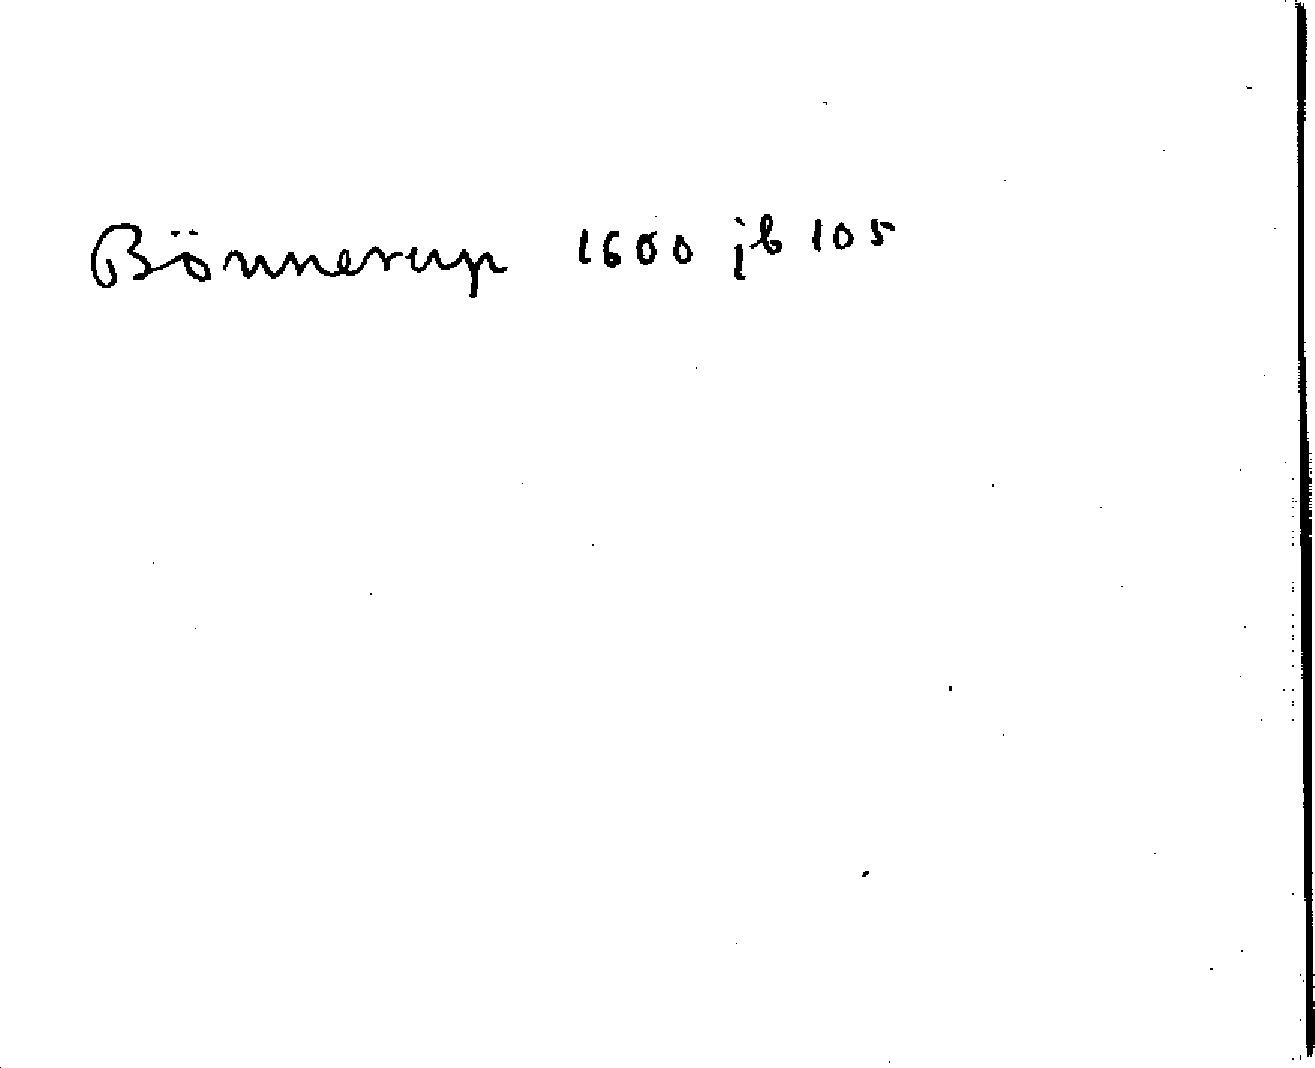 Bönnerup 1600 jb 105